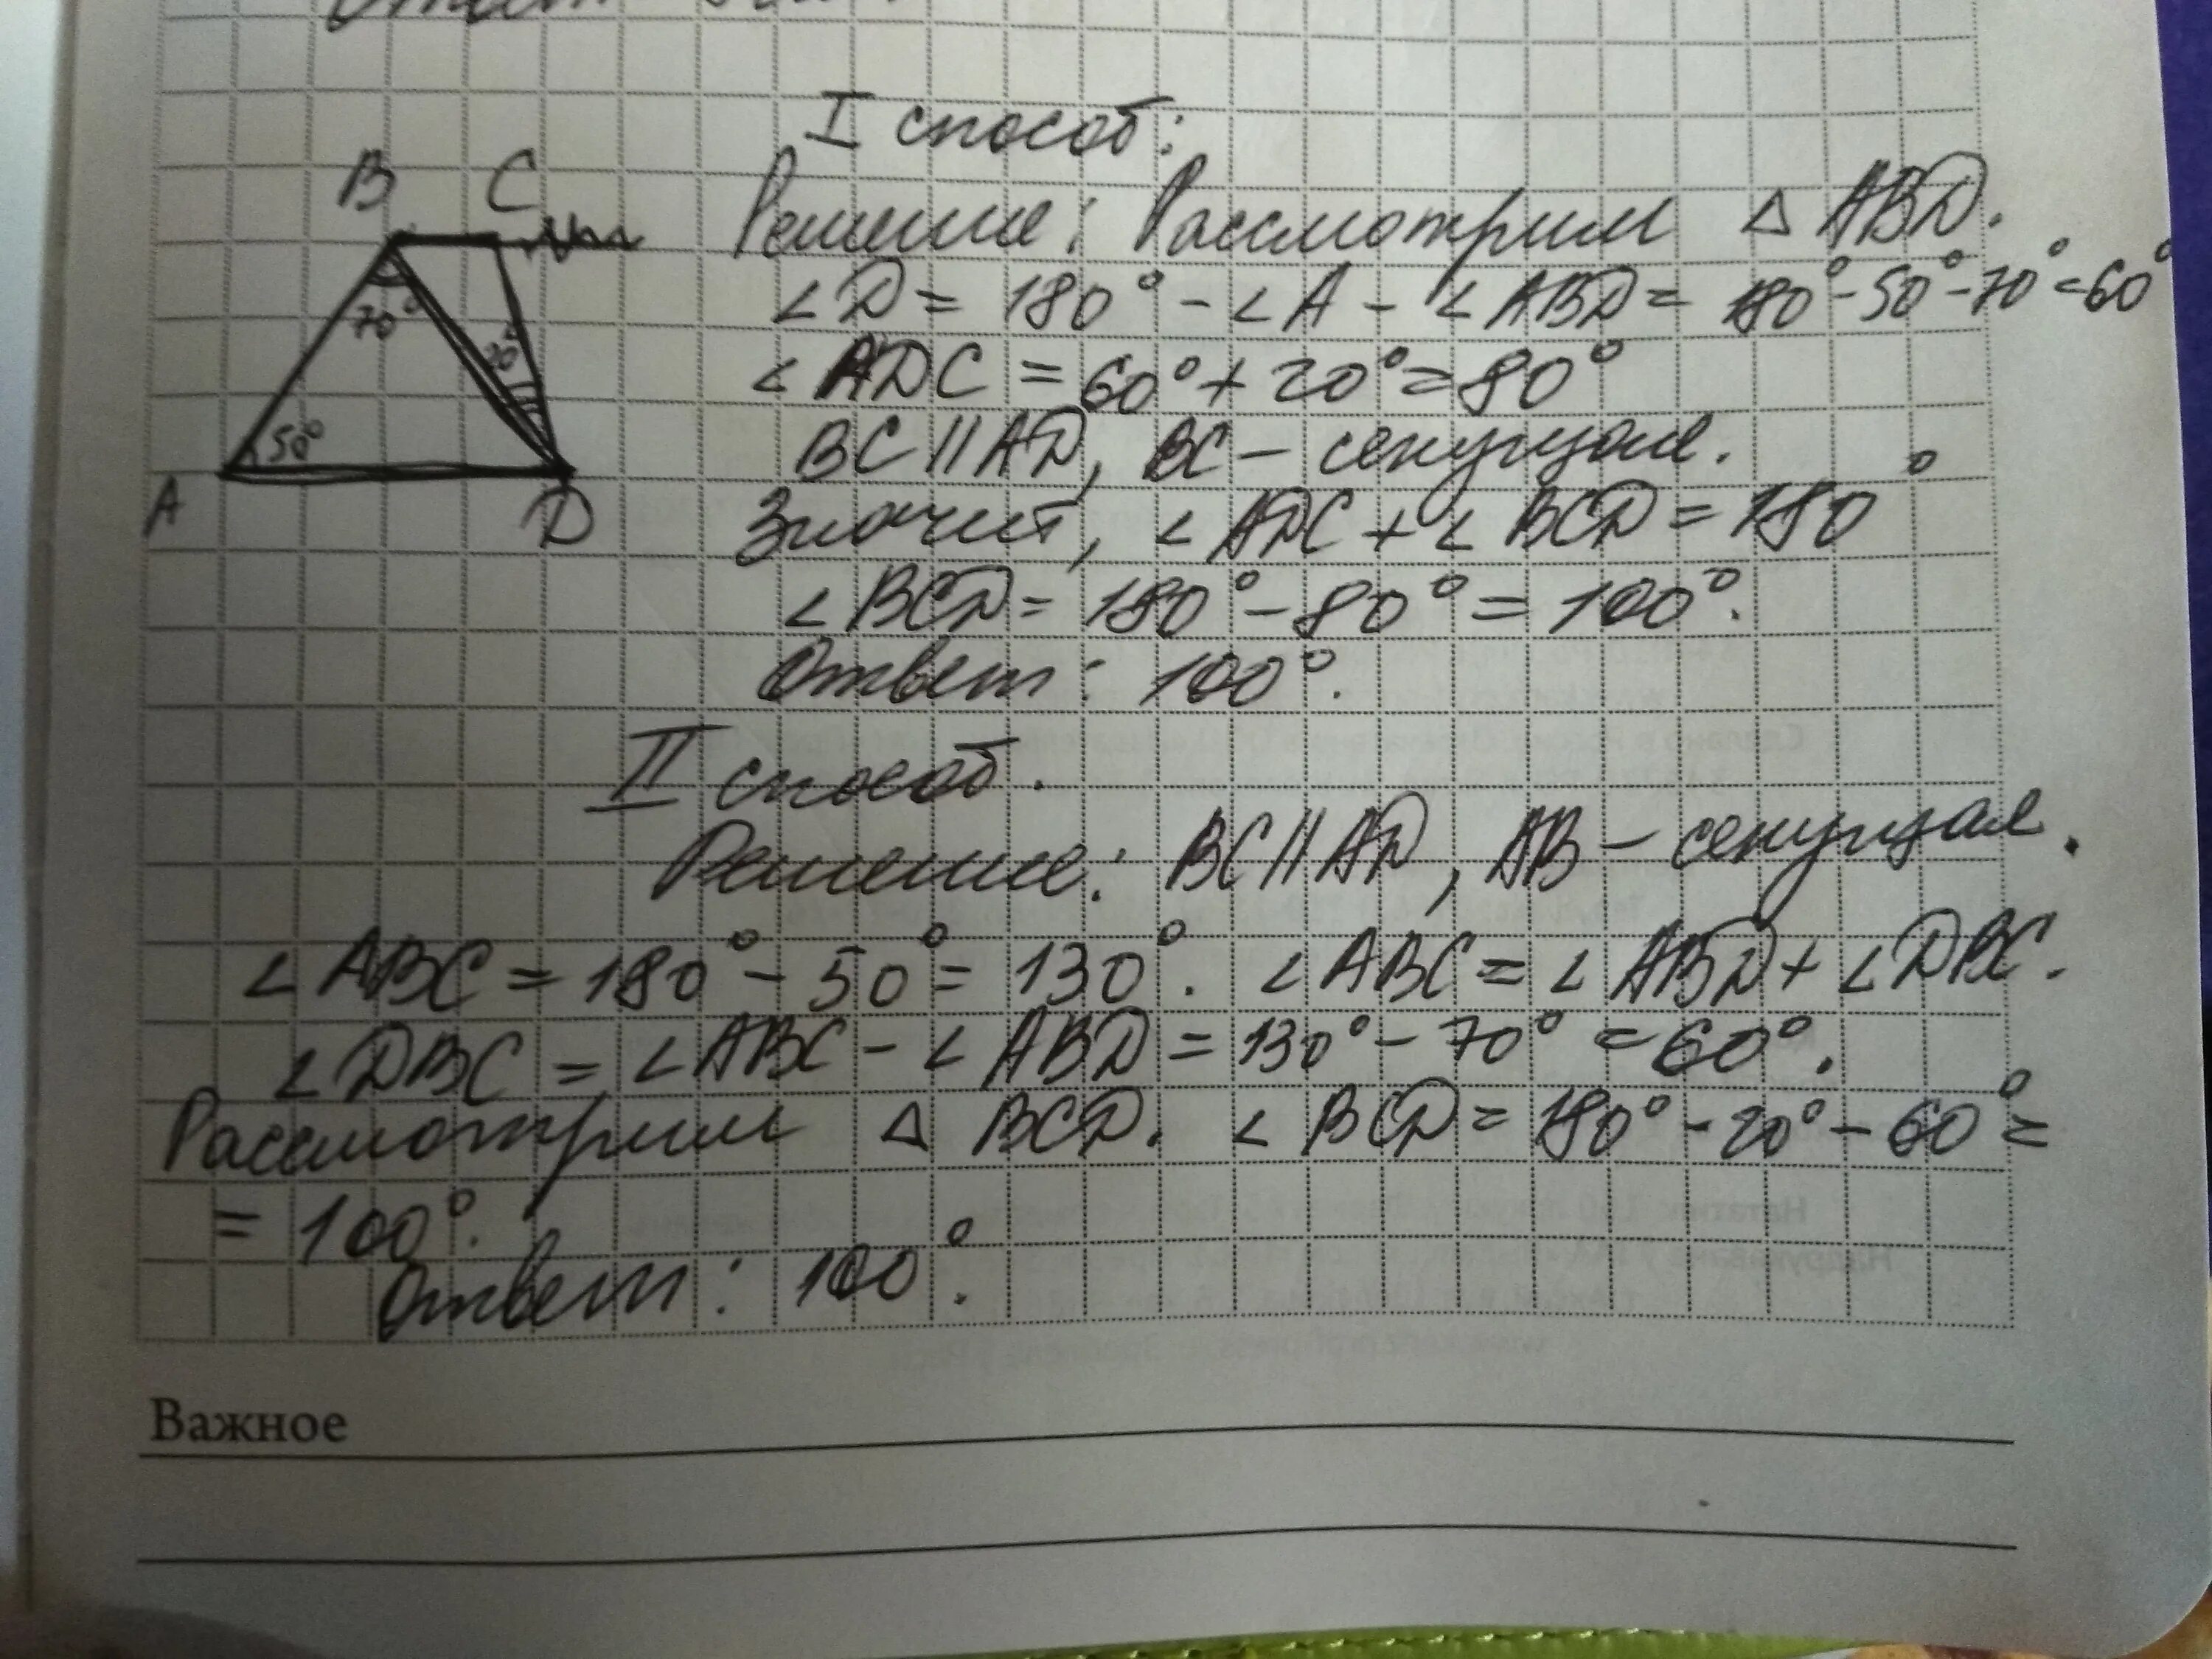 Ответ
I способ:
B C
Решение: Рассмотрим △ ABD.
∠D = 180° - ∠A - ∠ABD = 180° - 50° - 70° = 60°
70° 20°
∠ADC = 60° + 20° = 80°
50°
BC || AD, BC - секущая.
A D
Значит, ∠ADC + ∠BCD = 180°
∠BCD = 180° - 80° = 100°.
Ответ: 100°.
II способ.
Решение: BC || AD, AB - секущая.
∠ABC = 180° - 50° = 130°. ∠ABC = ∠ABD + ∠DBC.
∠DBC = ∠ABC - ∠ABD = 130° - 70° = 60°.
Рассмотрим △ BCD. ∠BCD = 180° - 20° - 60° =
= 100°.
Ответ: 100°.
Важное